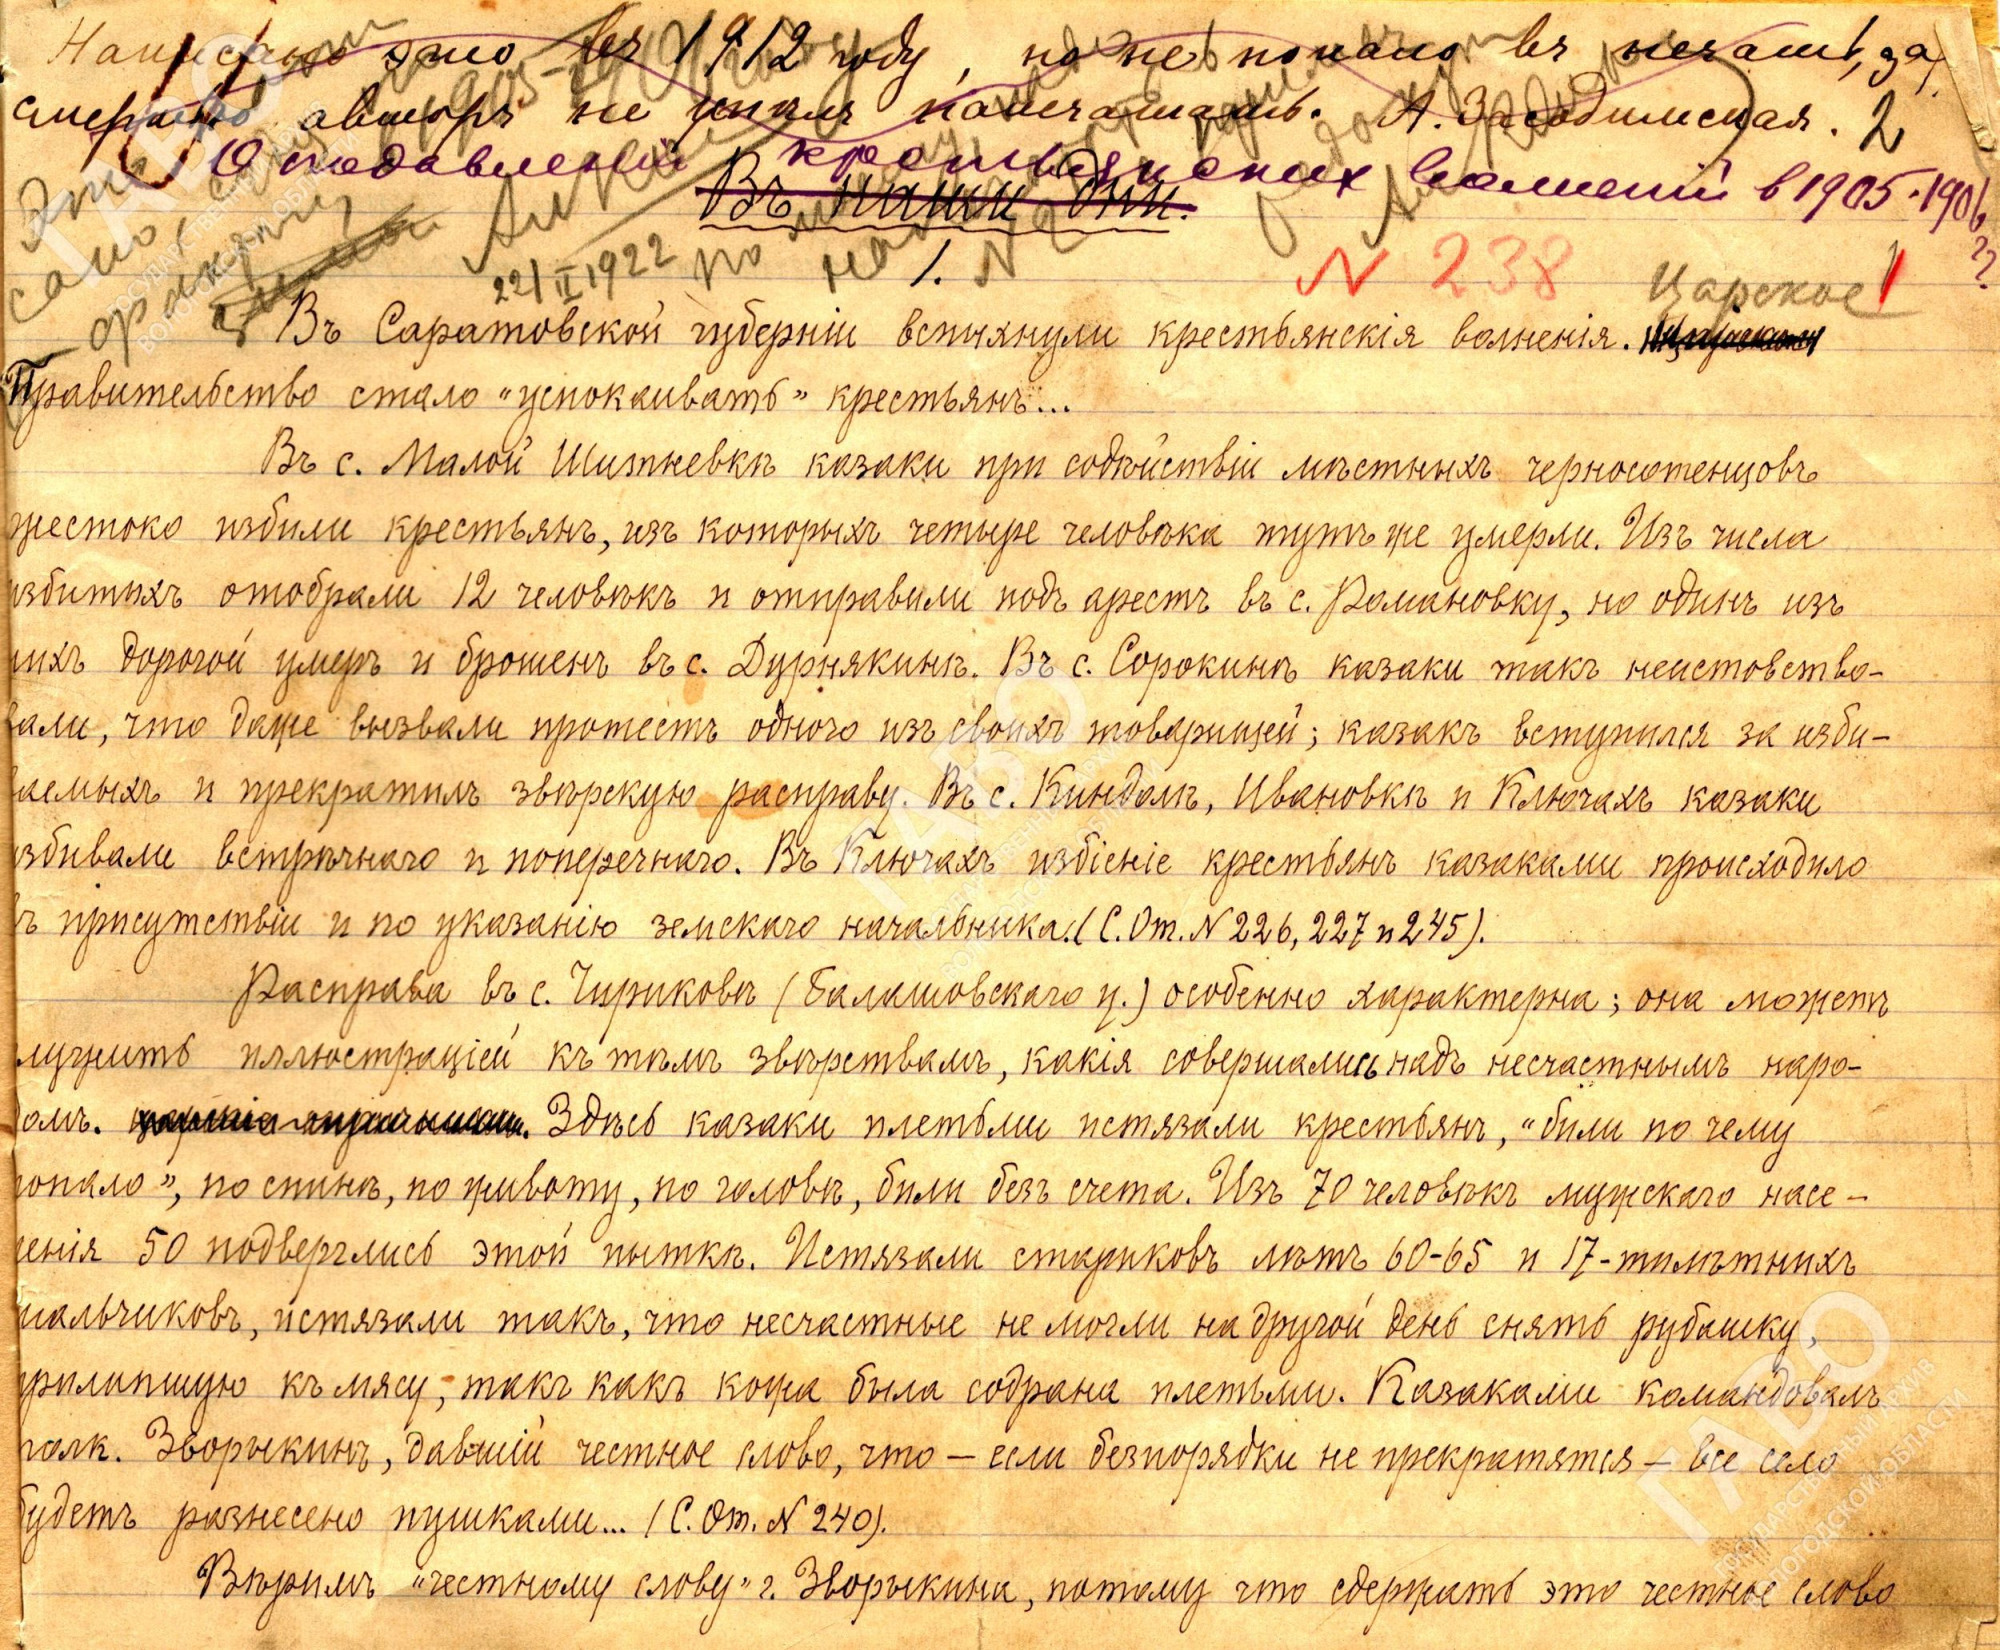 Написано это въ 1912 году, но не попало въ печать, за
смертью авторъ не успѣлъ напечатать. А. Засодимская. 2
О подавлении крестьянских волнений в 1905-1906
Въ наши дни.
22/II 1922
1.
N 238
Царское
Въ Саратовской губерніи вспыхнули крестьянскія волненія.
Правительство стало „успокаивать" крестьянъ...
Въ с. Малой Шитневкѣ казаки при содѣйствіи мѣстныхъ черносотенцовъ
жестоко избили крестьянъ, изъ которыхъ четыре человѣка тутъ же умерли. Изъ числа
избитыхъ отобрали 12 человѣкъ и отправили подъ арестъ въ с. Романовку, но одинъ изъ
нихъ дорогой умеръ и брошенъ въ с. Дурнякинѣ. Въ с. Сорокинѣ казаки такъ неистовство-
вали, что даже вызвали протестъ одного изъ своихъ товарищей; казакъ вступился за изби-
ваемыхъ и прекратилъ звѣрскую расправу. Въ с. Киндолѣ, Ивановкѣ и Ключахъ казаки
избивали встрѣчнаго и поперечнаго. Въ Ключахъ избіеніе крестьянъ казаками происходило
въ присутствіи и по указанію земскаго начальника. (С. От. N 226, 227 и 245).
Расправа въ с. Чириковѣ (Балашовскаго у.) особенно характерна; она можетъ
служить иллюстраціей къ тѣмъ звѣрствамъ, какія совершались надъ несчастнымъ наро-
домъ. Здѣсь казаки плетьми истязали крестьянъ, „били по чему
попало", по спинѣ, по животу, по головѣ, били безъ счета. Изъ 70 человѣкъ мужскаго насе-
ленія 50 подверглись этой пыткѣ. Истязали стариковъ лѣтъ 60-65 и 17-тилѣтнихъ
мальчиковъ, истязали такъ, что несчастные не могли на другой день снять рубашку,
прилипшую къ мясу, такъ какъ кожа была содрана плетьми. Казаками командовалъ
полк. Зворыкинъ, давшій честное слово, что — если безпорядки не прекратятся — все село
будетъ разнесено пушками... (С. От. N 240).
Вѣримъ „честному слову" г. Зворыкина, потому что сдержать это честное слово